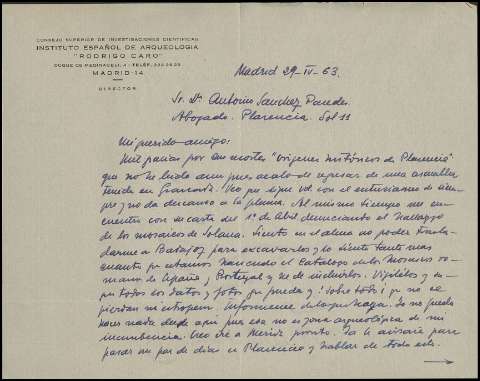 CONSEJO SUPERIOR DE INVESTIGACIONES CIENTIFICAS
INSTITUTO ESPAÑOL DE ARQUEOLOGIA
"RODRIGO CARO"
DUQUE DE MEDINACELI, 4 - TELEF.
MADRID-14
DIRECTOR
Madrid 29-IV-63.
Sr. Dn. Antonio Sanchez Paredes
Abogado. Plasencia. Sol 11
Mi querido amigo:
Mil gracias por sus notas "Orígenes históricos de Plasencia"
que no he leido aun pues acabo de regresar de una asamblea
tenida en. Veo que sigue vd con el entusiasmo de siem-
pre y no da descanso a la pluma. Al mismo tiempo me en-
cuentro con su carta del 1º de Abril denunciando el hallazgo
de los mosaicos de Solana. Siento en el alma no poder trasla-
darme a Badajoz para excavarlos y lo siento tanto mas
cuanto que estamos haciendo el Catálogo de los Mosaicos ro-
manos de España y Portugal y he de incluirlos. Vigílelos y
todos los datos y fotos que pueda y ¡sobre todo! que no se
pierdan ni estropeen. Infórmeme de lo que haya. Yo no puedo
hacer nada desde aqui pues esa no es zona arqueológica de mi
incumbencia. Creo iré a Mérida pronto. Ya le avisaré para
pasar un par de dias en Plasencia y hablar de todo esto.